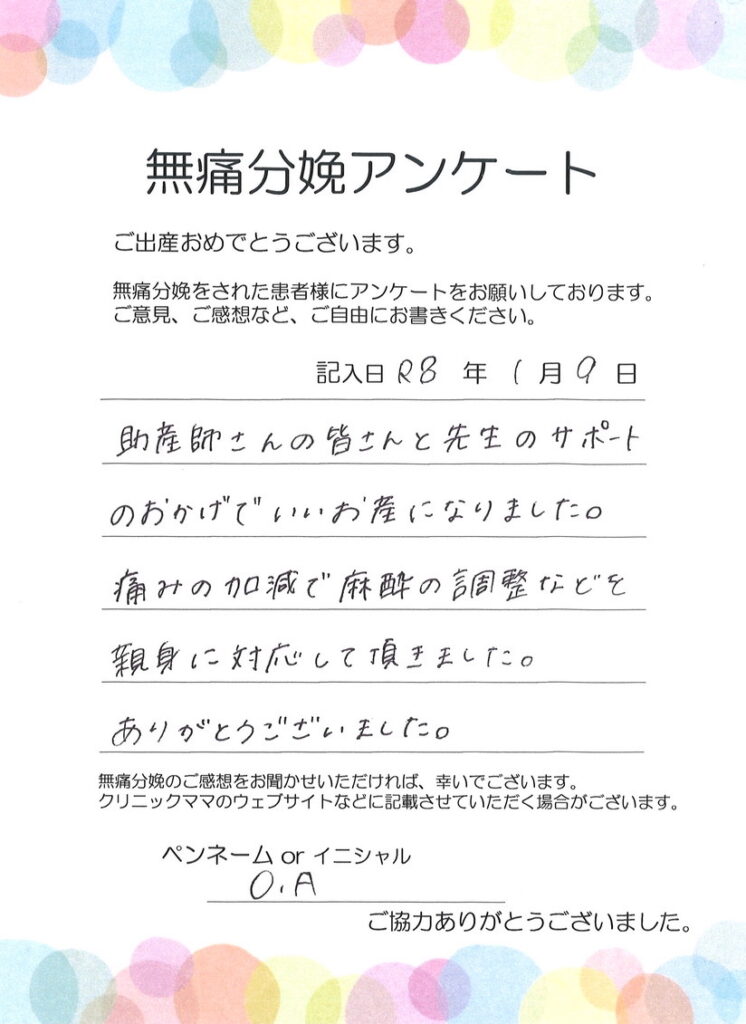 無痛分娩アンケート
ご出産おめでとうございます。
無痛分娩をされた患者様にアンケートをお願いしております。
ご意見、ご感想など、ご自由にお書きください。
記入日 R8 年 1 月 9 日
助産師さんの皆さんと先生のサポート
のおかげでいいお産になりました。
痛みの加減で麻酔の調整などを
親身に対応して頂きました。
ありがとうございました。
無痛分娩のご感想をお聞かせいただければ、幸いでございます。
クリニックママのウェブサイトなどに記載させていただく場合がございます。
ペンネーム or イニシャル
O.A
ご協力ありがとうございました。